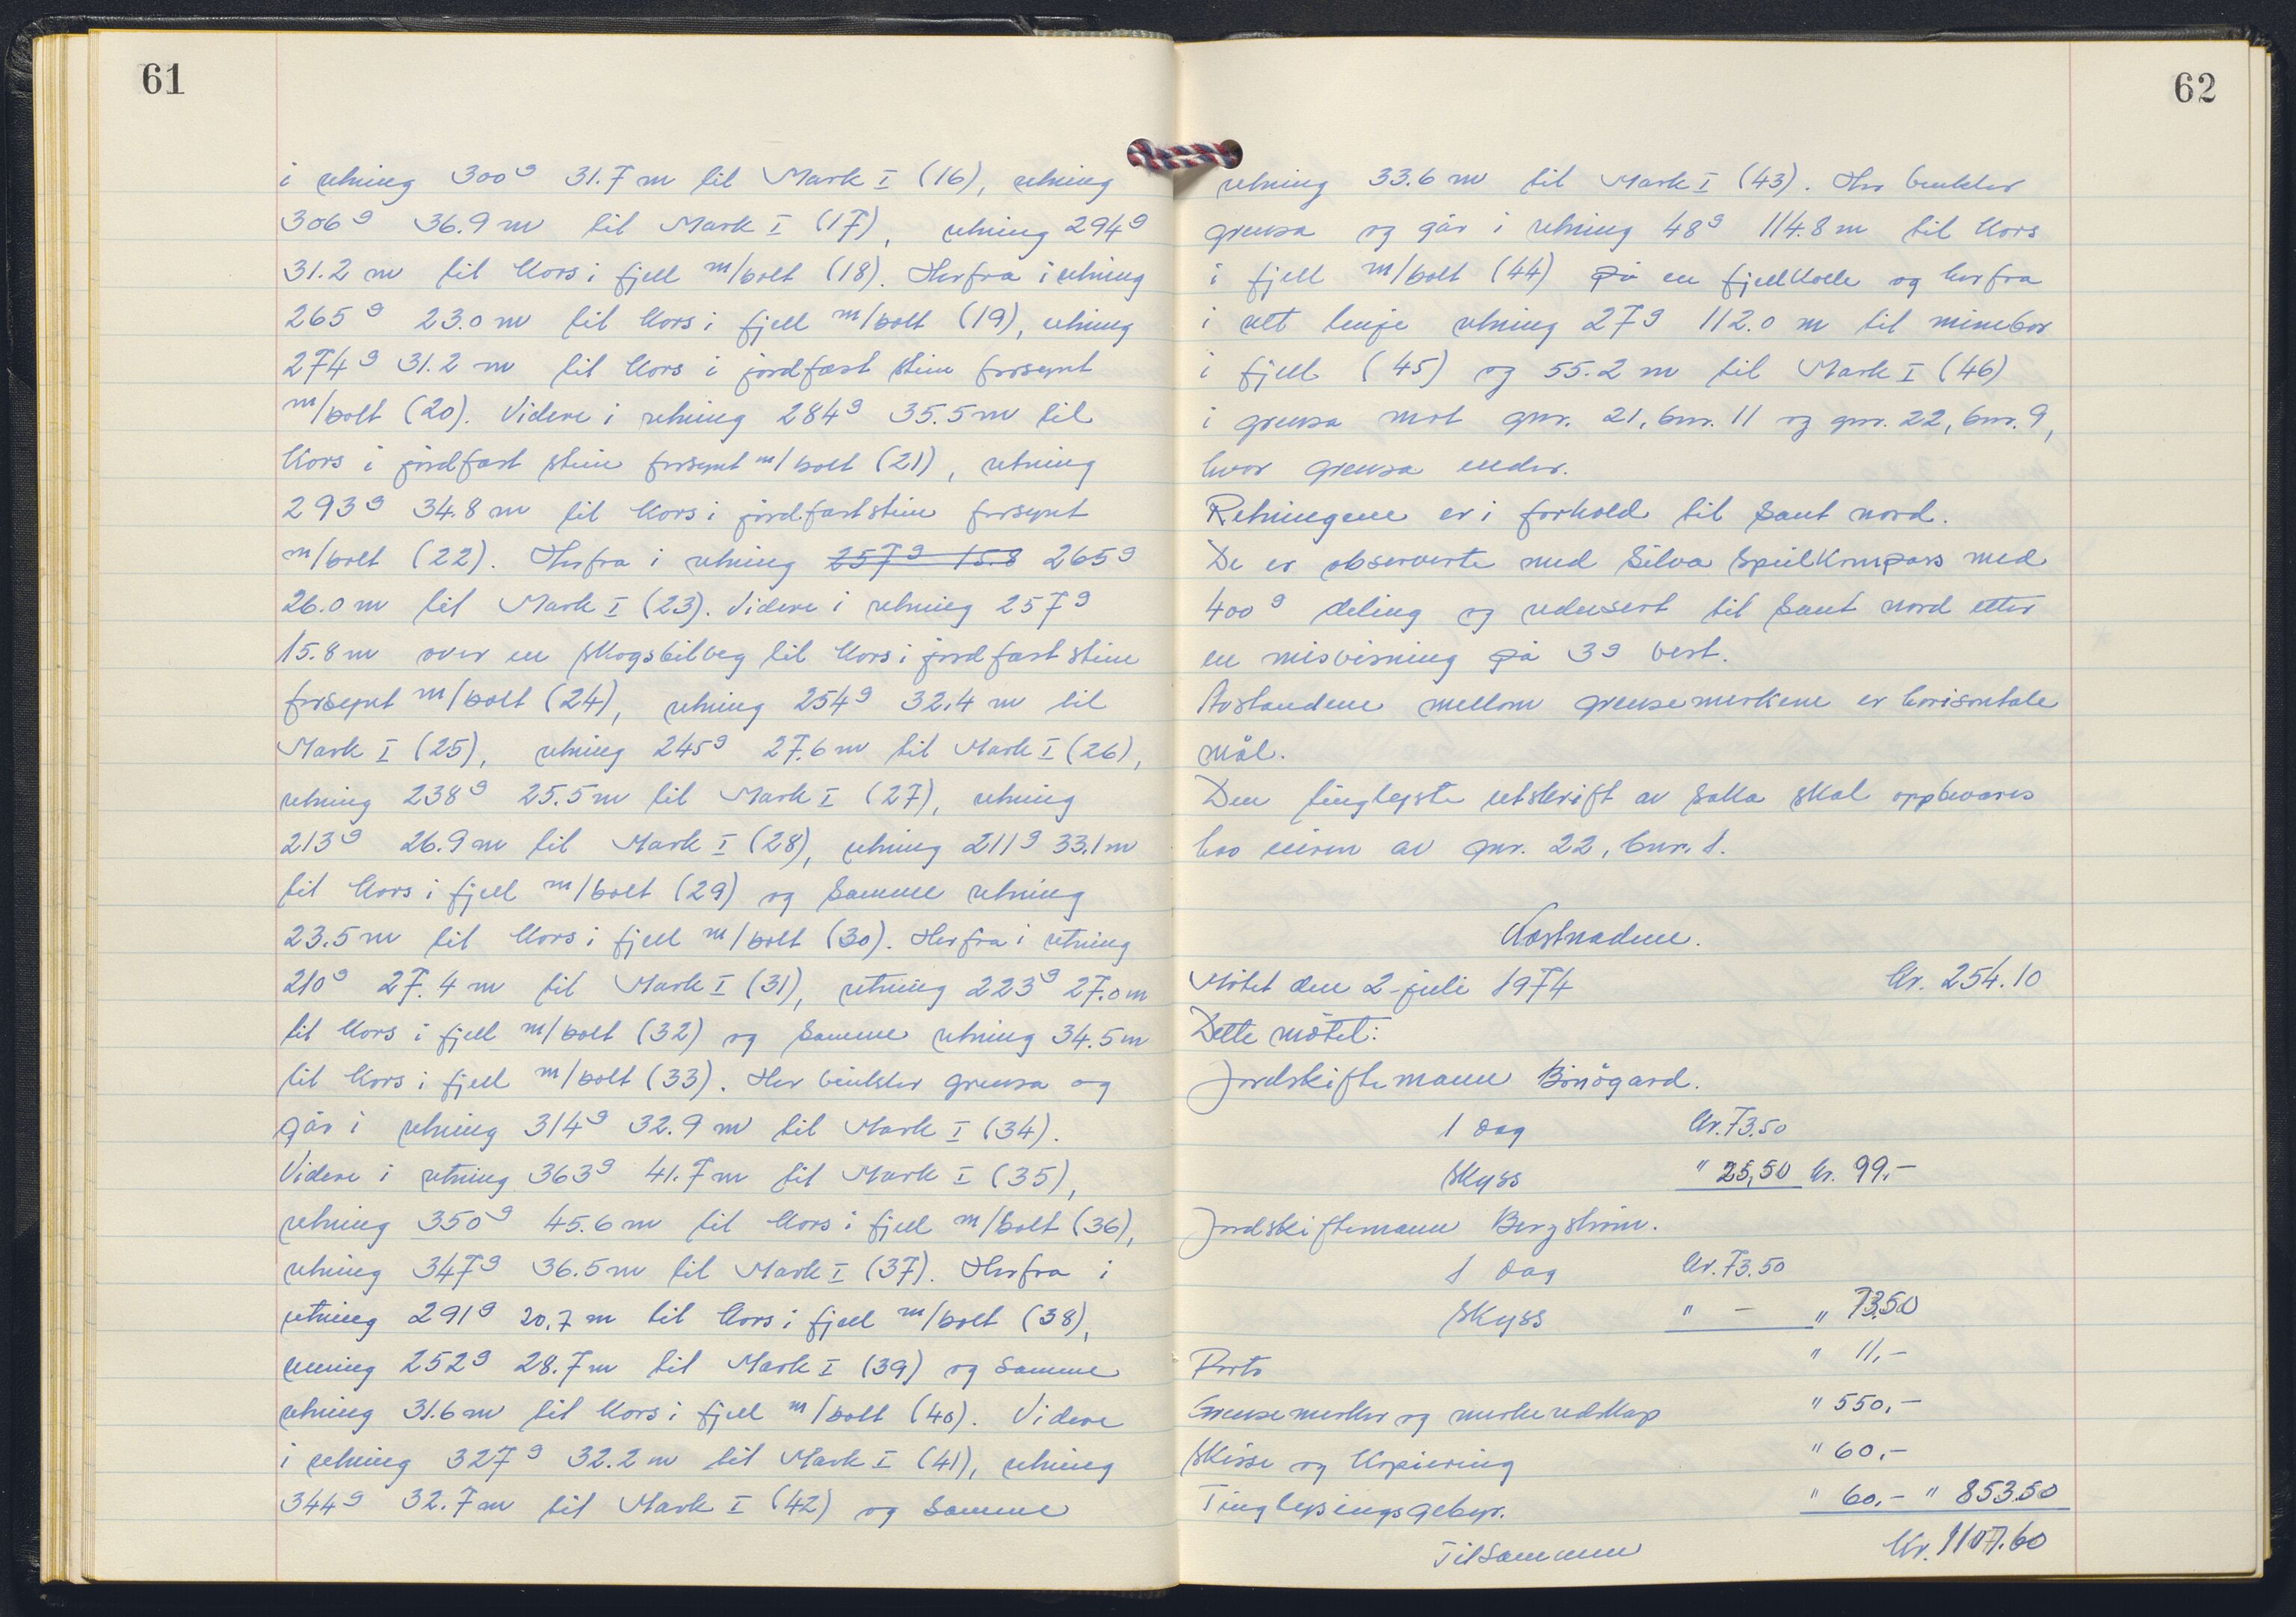 61
i retning 300g 31.7 m til Mark I (16), retning
306g 36.9 m til Mark I (17), retning 294g
31.2 m til kors i fjell m/bolt (18). Herfra i retning
265g 23.0 m til kors i fjell m/bolt (19), retning
274g 31.2 m til kors i jordfast stein forsynt
m/bolt (20). Videre i retning 284g 35.5 m til
kors i jordfast stein forsynt m/bolt (21), retning
293g 34.8 m til kors i jordfast stein forsynt
m/bolt (22). Herfra i retning 257g 15.8 265g
26.0 m til Mark I (23). Videre i retning 257g
15.8 m over en skogsbilveg til kors i jordfast stein
forsynt m/bolt (24), retning 254g 32.4 m til
Mark I (25), retning 245g 27.6 m til Mark I (26),
retning 238g 25.5 m til Mark I (27), retning
213g 26.9 m til Mark I (28), retning 211g 33.1 m
til kors i fjell m/bolt (29) og samme retning
23.5 m til kors i fjell m/bolt (30). Herfra i retning
210g 27.4 m til Mark I (31), retning 223g 27.0 m
til kors i fjell m/bolt (32) og samme retning 34.5 m
til kors i fjell m/bolt (33). Her vinkler grensa og
går i retning 314g 32.9 m til Mark I (34).
Videre i retning 363g 41.7 m til Mark I (35),
retning 350g 45.6 m til kors i fjell m/bolt (36),
retning 347g 36.5 m til Mark I (37). Herfra i
retning 291g 20.7 m til kors i fjell m/bolt (38),
retning 252g 28.7 m til Mark I (39) og samme
retning 31.6 m til kors i fjell m/bolt (40). Videre
i retning 327g 32.2 m til Mark I (41), retning
344g 32.7 m til Mark I (42) og samme
62
retning 33.6 m til Mark I (43). Her vinkler
grensa og går i retning 48g 114.8 m til kors
i fjell m/bolt (44) på en fjellkolle og herfra
i rett linje retning 27g 112.0 m til minebor
i fjell (45) og 55.2 m til Mark I (46)
i grensa mot gnr. 21, bnr. 11 og gnr. 22, bnr. 9,
hvor grensa ender.
Retningene er i forhold til sant nord.
De er observerte med Silva Speilkompass med
400g deling og redusert til sant nord etter
en misvisning på 3g vest.
Avstandene mellom grensemerkene er horisontale
mål.
Den tinglyste utskrift av saka skal oppbevares
hos eieren av gnr. 22, bnr. 1.
Kostnadene.
Møtet den 2. juli 1974 kr. 254.10
Dette møtet:
Jordskiftemann Binögard.
1 dag kr. 73.50
Skyss " 25,50 kr. 99.-
Jordskiftemann Bergström.
1 dag kr. 73.50
Skyss " - " 73.50
Porto " 11,-
Grensemerker og merkeredskap " 550,-
Skisse og kopiering " 60,-
Tinglysingsgebyr. " 60,- " 853.50
Tilsammen kr. 1107.60